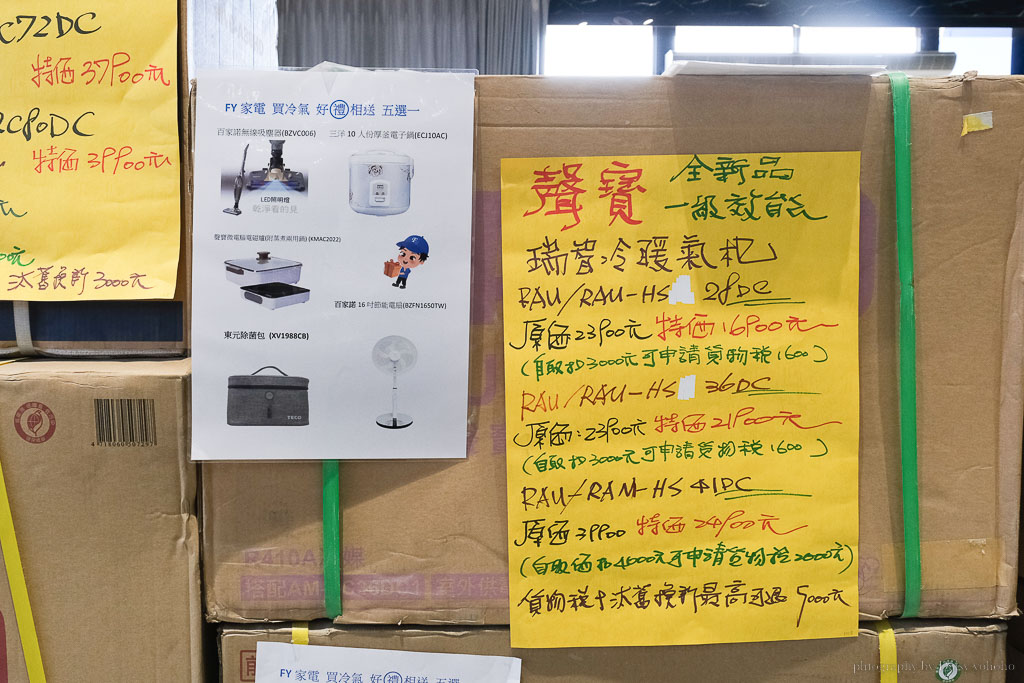 C72DC
特価37900元
2C80DC
特価39900元
汰舊換新3000元
FY 家電 買冷氣 好禮相送 五選一
百家諾無線吸塵器(BZVC006)
三洋 10 人份厚釜電子鍋(ECJ10AC)
LED照明燈
乾淨看的見
聲寶微電腦電磁爐(附蒸煮兩用鍋)(KMAC2022)
百家諾 16 吋節能電扇(BZFN1650TW)
東元除菌包 (XV1988CB)
TECO
聲寶 全新品
一級效能
瑞智冷暖氣機
RAU/RAU-HS 28DC
原価23900元 特価16900元
(自取扣3000元可申請貨物税1600)
RAU/RAU-HS 36DC
原価:23900元 特価21900元
(自取扣3000元可申請貨物税1600)
RAU/RAM-HS 41DC
原価39900 特価24900元
(自取価扣4000元可申請貨物税2000元)
貨物税+汰舊換新最高可退5000元
4 718960 507297
FY 家電 買冷氣 好禮相送 五選一